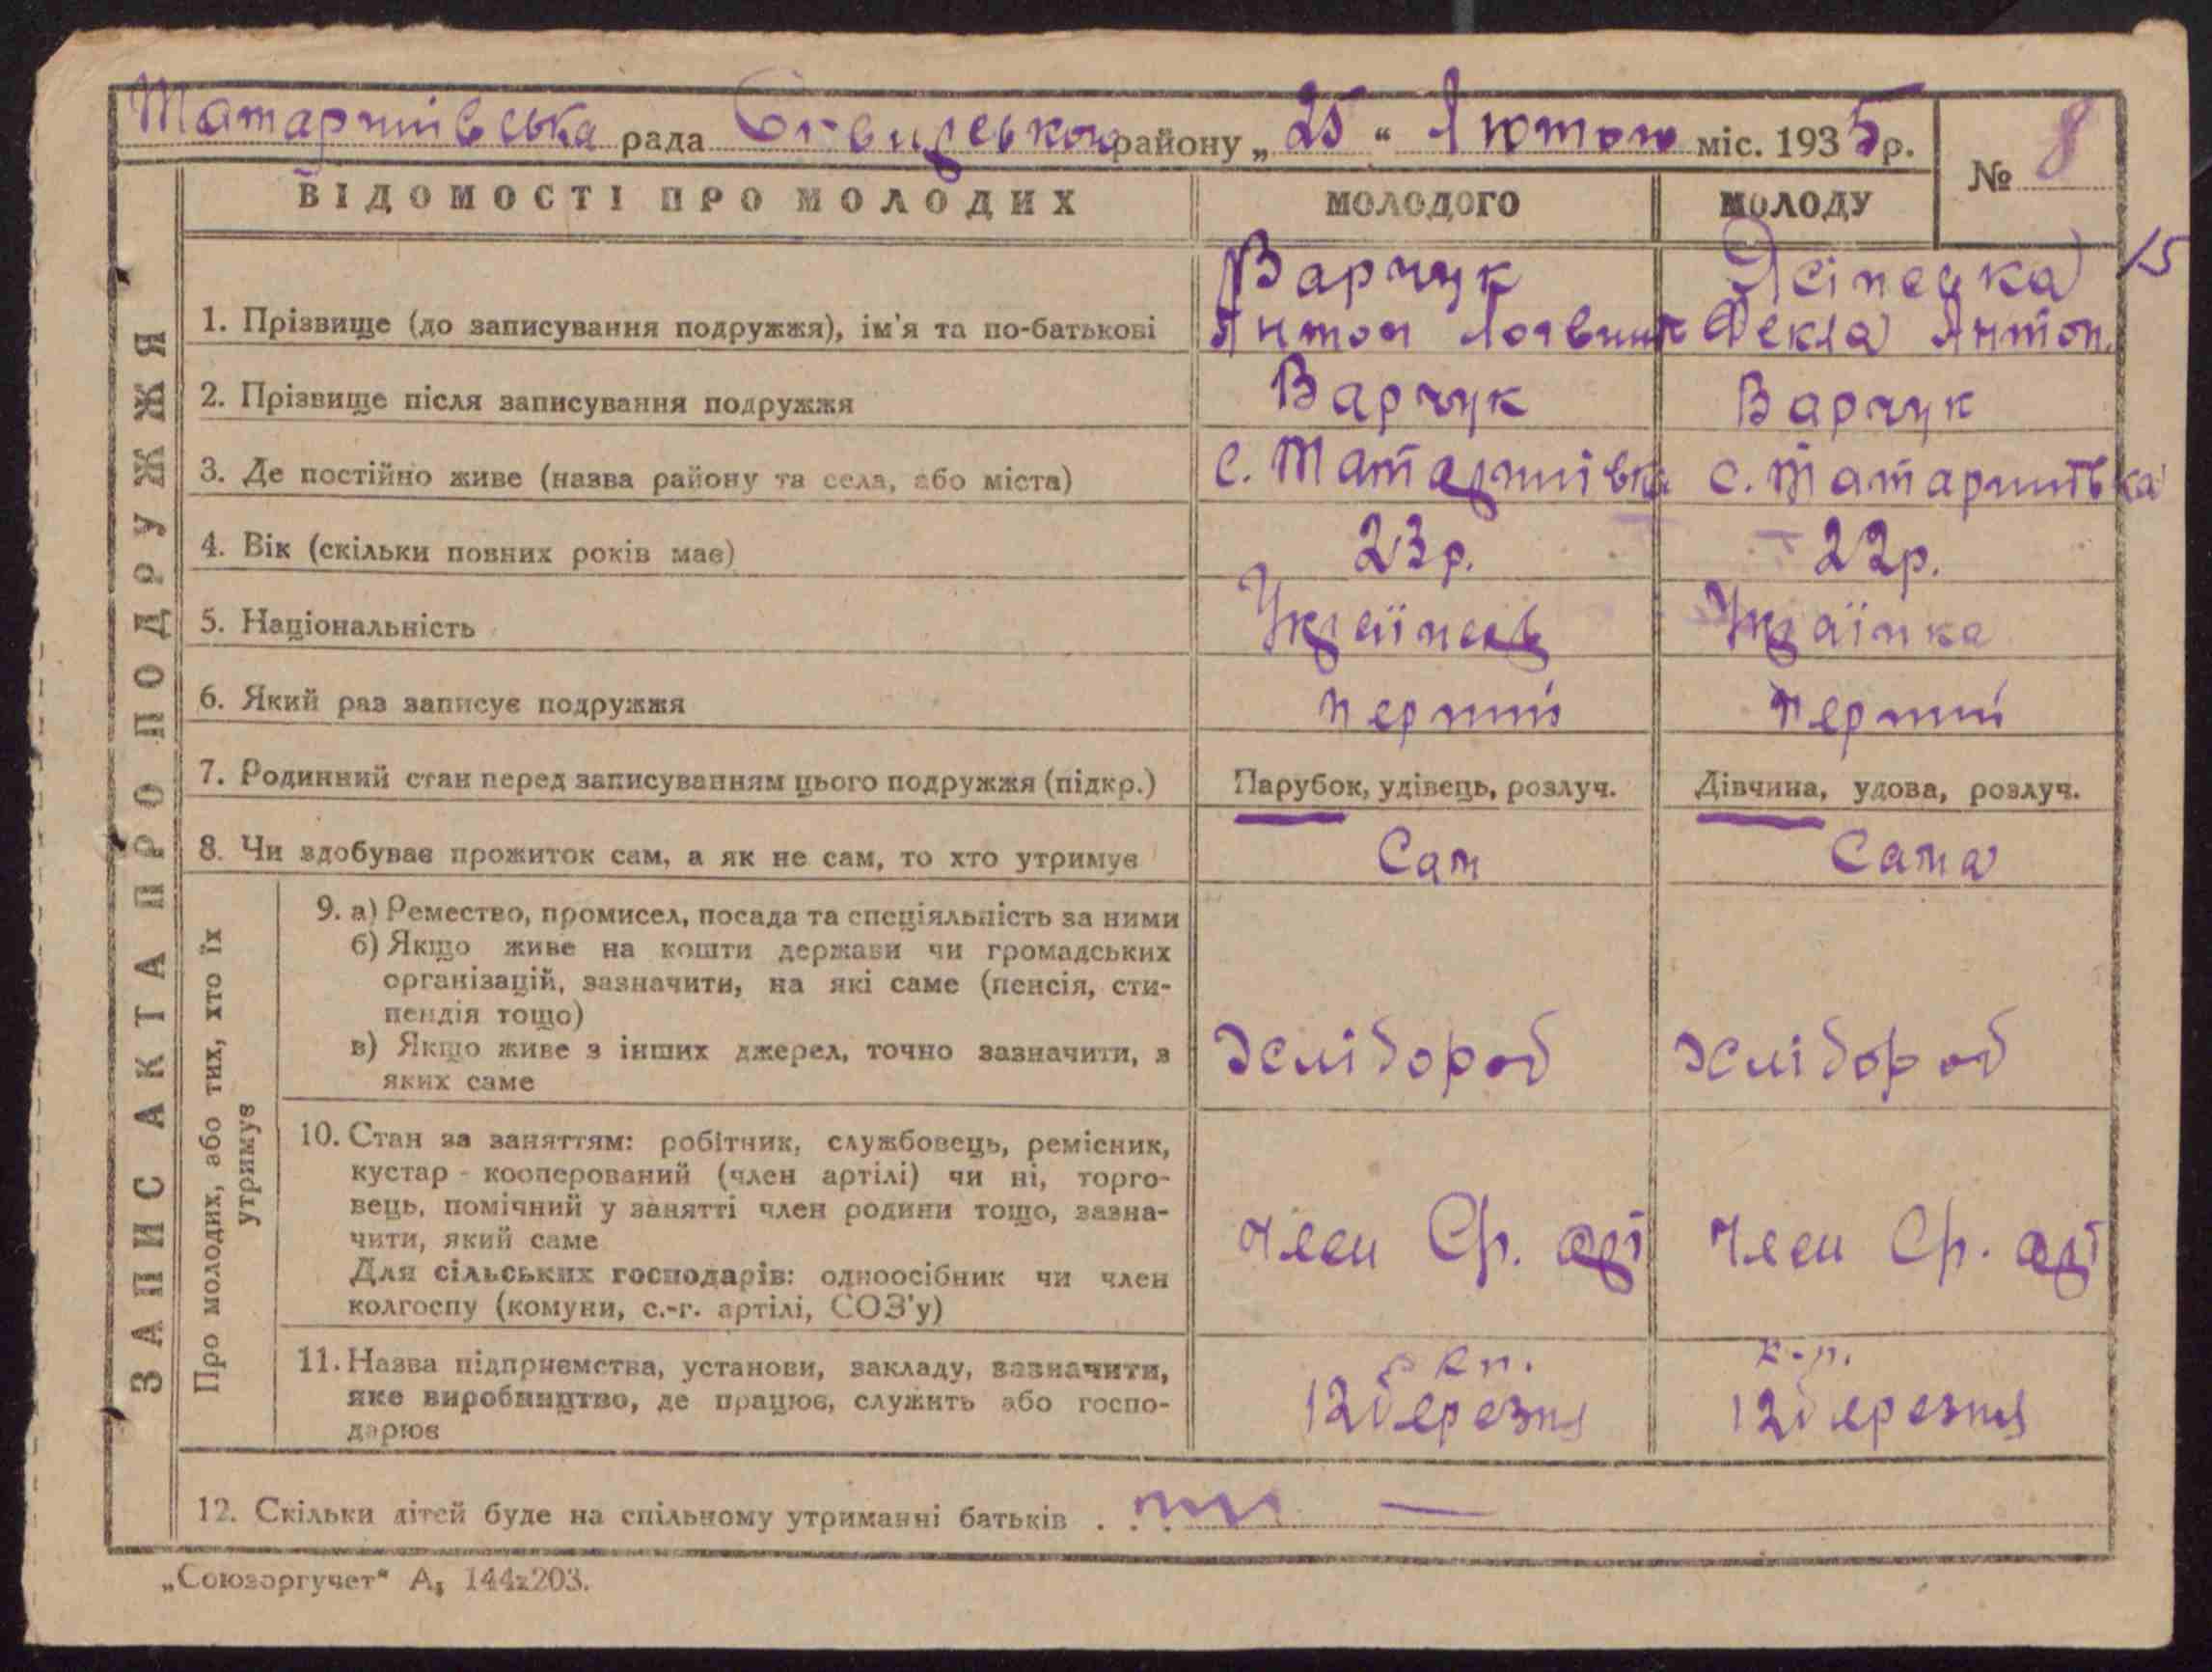 Татаршівська рада Сквирського району „25“ Лютого міс. 1935 р.
№ 8
ВІДОМОСТІ ПРО МОЛОДИХ
МОЛОДОГО
МОЛОДУ
15
ЗАПИС АКТА ПРО ПОДРУЖЖЯ
1. Прізвище (до записування подружжя), ім'я та по-батькові
Варчук
Антон
Текла Антон.
2. Прізвище після записування подружжя
Варчук
Варчук
3. Де постійно живе (назва району та села, або міста)
с. Татаршівка
с. Татаршівка
4. Вік (скільки повних років має)
23р.
22р.
5. Національність
Українець
Українка
6. Який раз записує подружжя
перший
перший
7. Родинний стан перед записуванням цього подружжя (підкр.)
Парубок, удівець, розлуч.
Дівчина, удова, розлуч.
8. Чи здобуває прожиток сам, а як не сам, то хто утримує
Сам
Сама
Про молодих, або тих, хто їх
утримує
9. а) Ремество, промисел, посада та спеціяльність за ними
б) Якщо живе на кошти держави чи громадських
організацій, зазначити, на які саме (пенсія, сти-
пендія тощо)
в) Якщо живе з інших джерел, точно зазначити, з
яких саме
Хлібороб
хлібороб
10. Стан за заняттям: робітник, службовець, ремісник,
кустар - кооперований (член артілі) чи ні, торго-
вець, помічний у занятті член родини тощо, зазна-
чити, який саме
Для сільських господарів: одноосібник чи член
колгоспу (комуни, с.-г. артілі, СОЗ'у)
член Ср. арт
член Ср. арт
11. Назва підприємства, установи, закладу, зазначити,
яке виробництво, де працює, служить або госпо-
дарює
12 березня
к-п.
12 березня
12. Скільки дітей буде на спільному утриманні батьків . . . —
„Союзоргучет“ А₅ 144х203.